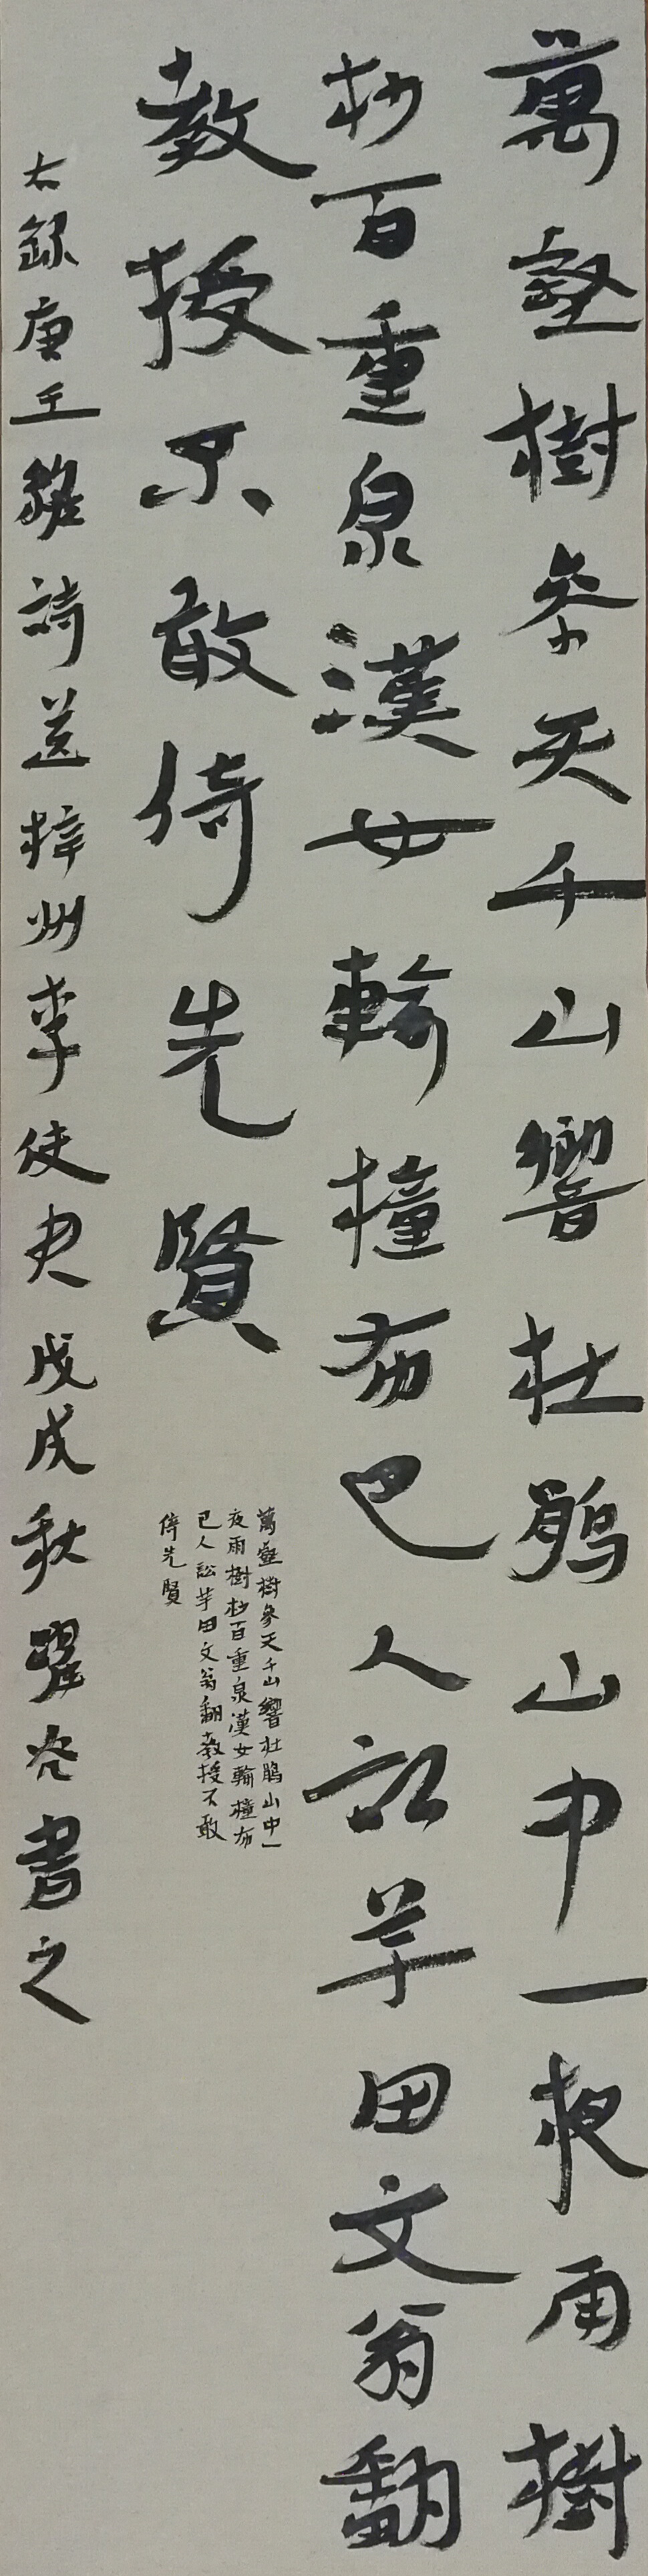 萬壑樹參天千山響杜鵑山中一夜雨樹
杪百重泉漢女輸橦布巴人訟芋田文翁翻
教授不敢倚先賢
萬壑樹參天千山響杜鵑山中一
夜雨樹杪百重泉漢女輸橦布
巴人訟芋田文翁翻教授不敢
倚先賢
右錄唐王維詩送梓州李使君戊戌秋躍光書之